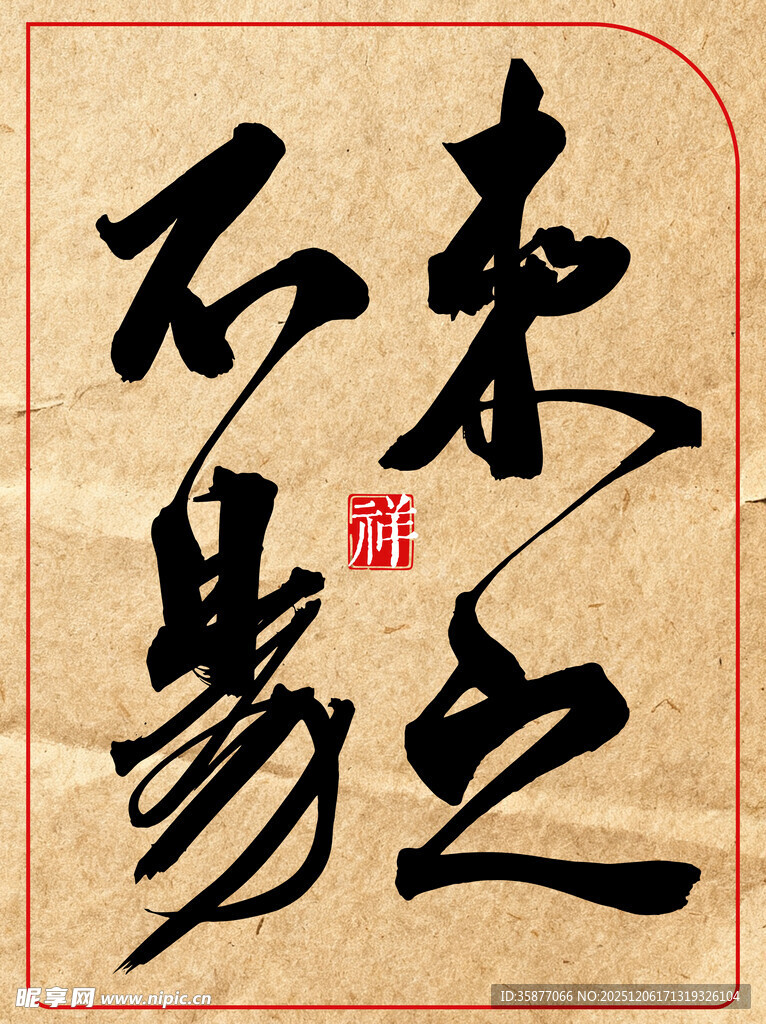 来之
不易
祥
昵享网 www.nipic.cn
ID:35877066 NO:20251206171319326104